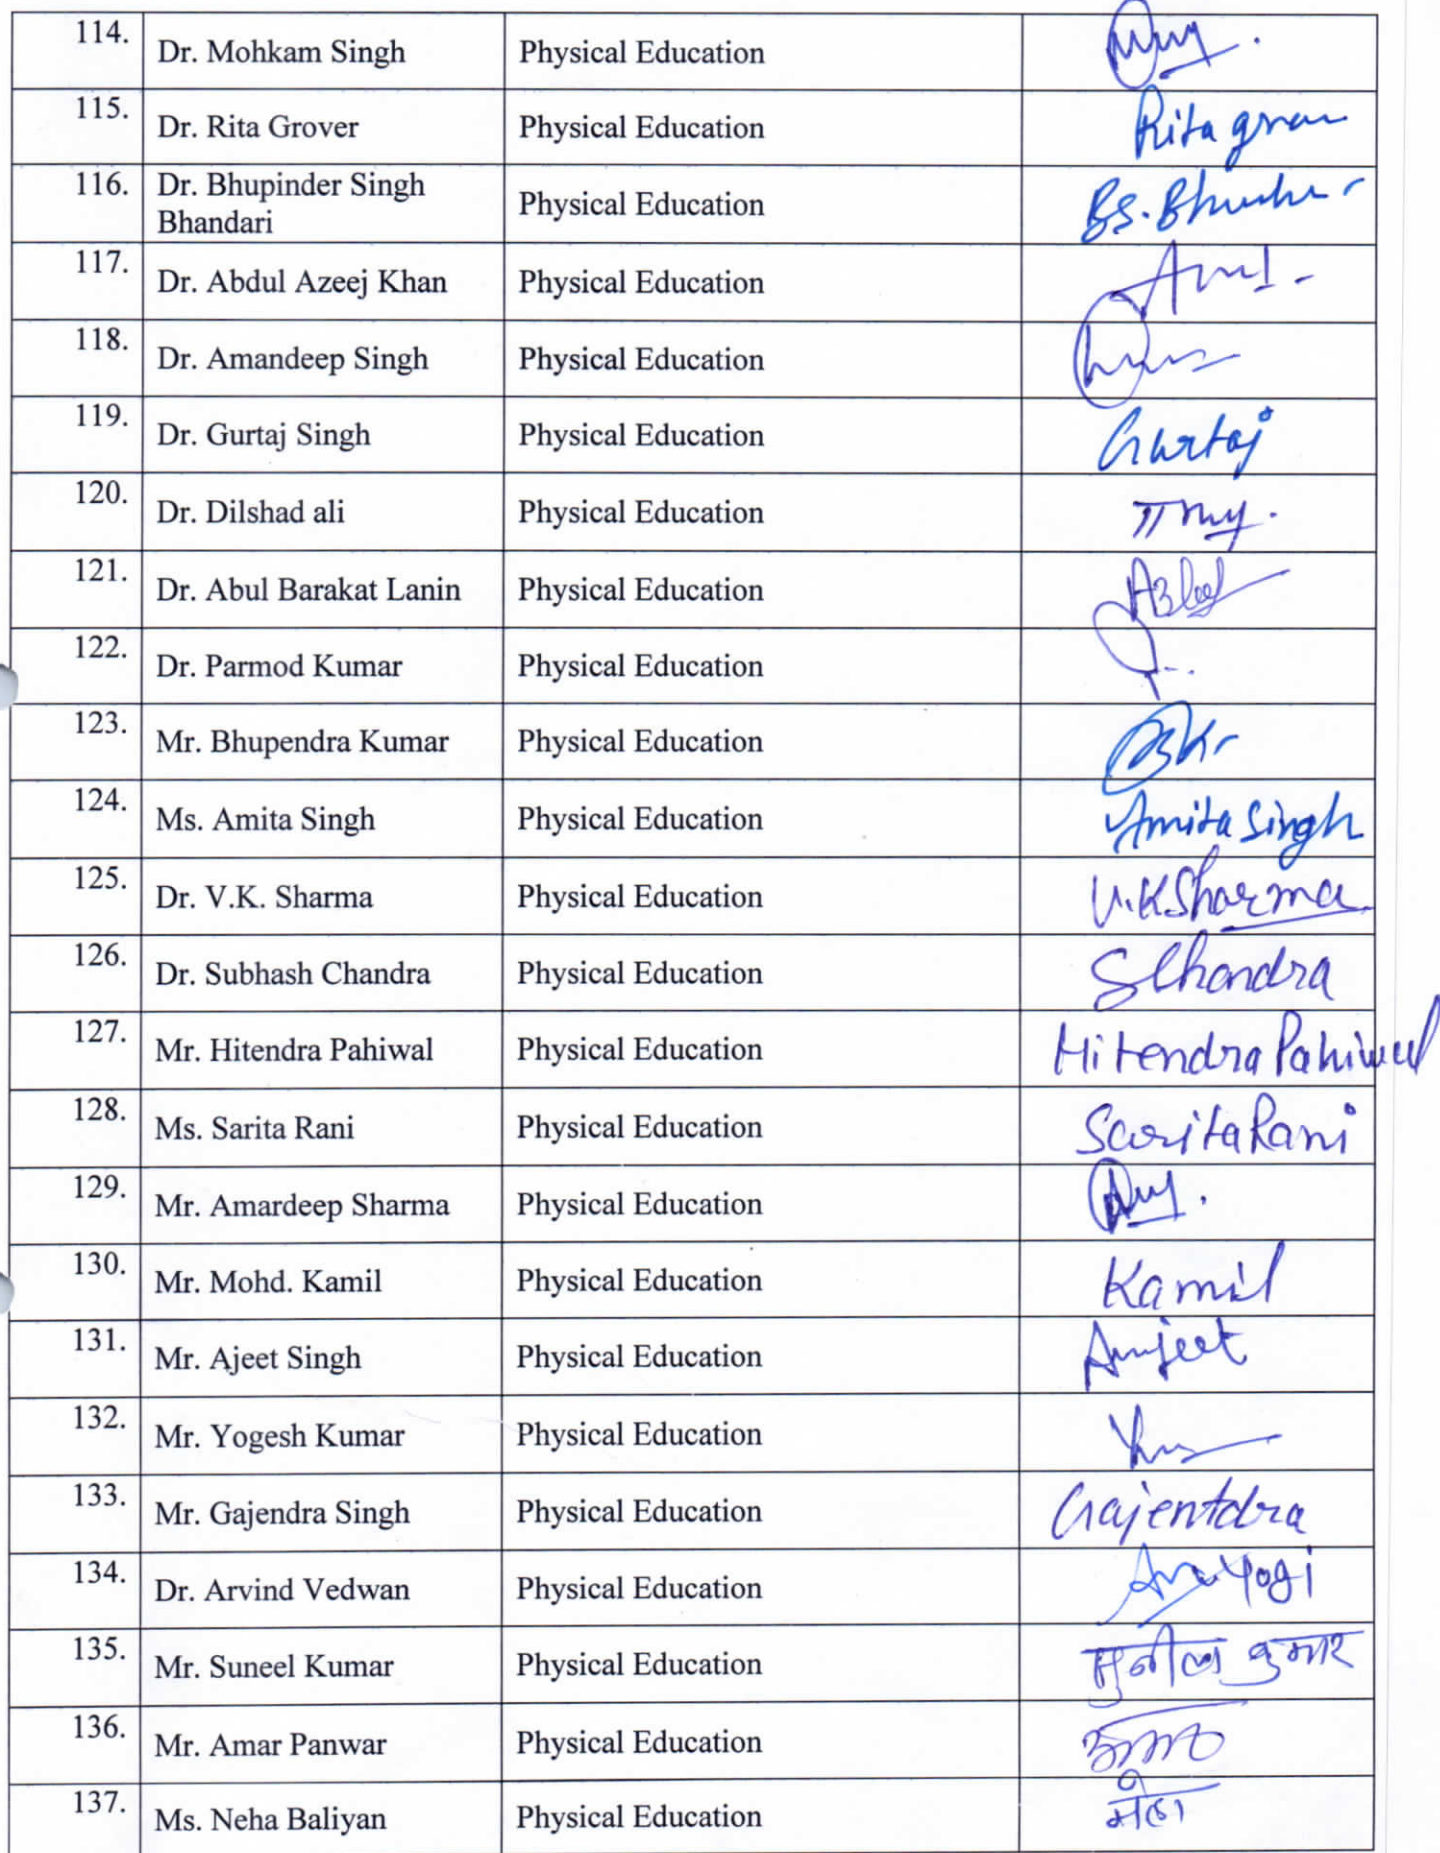 114. Dr. Mohkam Singh Physical Education
115. Dr. Rita Grover Physical Education Rita
116. Dr. Bhupinder Singh Physical Education BS.
Bhandari
117. Dr. Abdul Azeej Khan Physical Education
118. Dr. Amandeep Singh Physical Education
119. Dr. Gurtaj Singh Physical Education Gurtaj
120. Dr. Dilshad ali Physical Education
121. Dr. Abul Barakat Lanin Physical Education
122. Dr. Parmod Kumar Physical Education
123. Mr. Bhupendra Kumar Physical Education
124. Ms. Amita Singh Physical Education Amita Singh
125. Dr. V.K. Sharma Physical Education V.K Sharma
126. Dr. Subhash Chandra Physical Education SChandra
127. Mr. Hitendra Pahiwal Physical Education Hitendra Pahiwal
128. Ms. Sarita Rani Physical Education Sarita Rani
129. Mr. Amardeep Sharma Physical Education
130. Mr. Mohd. Kamil Physical Education Kamil
131. Mr. Ajeet Singh Physical Education
132. Mr. Yogesh Kumar Physical Education
133. Mr. Gajendra Singh Physical Education Gajentdra
134. Dr. Arvind Vedwan Physical Education Yogi
135. Mr. Suneel Kumar Physical Education सुनील कुमार
136. Mr. Amar Panwar Physical Education
137. Ms. Neha Baliyan Physical Education नेहा